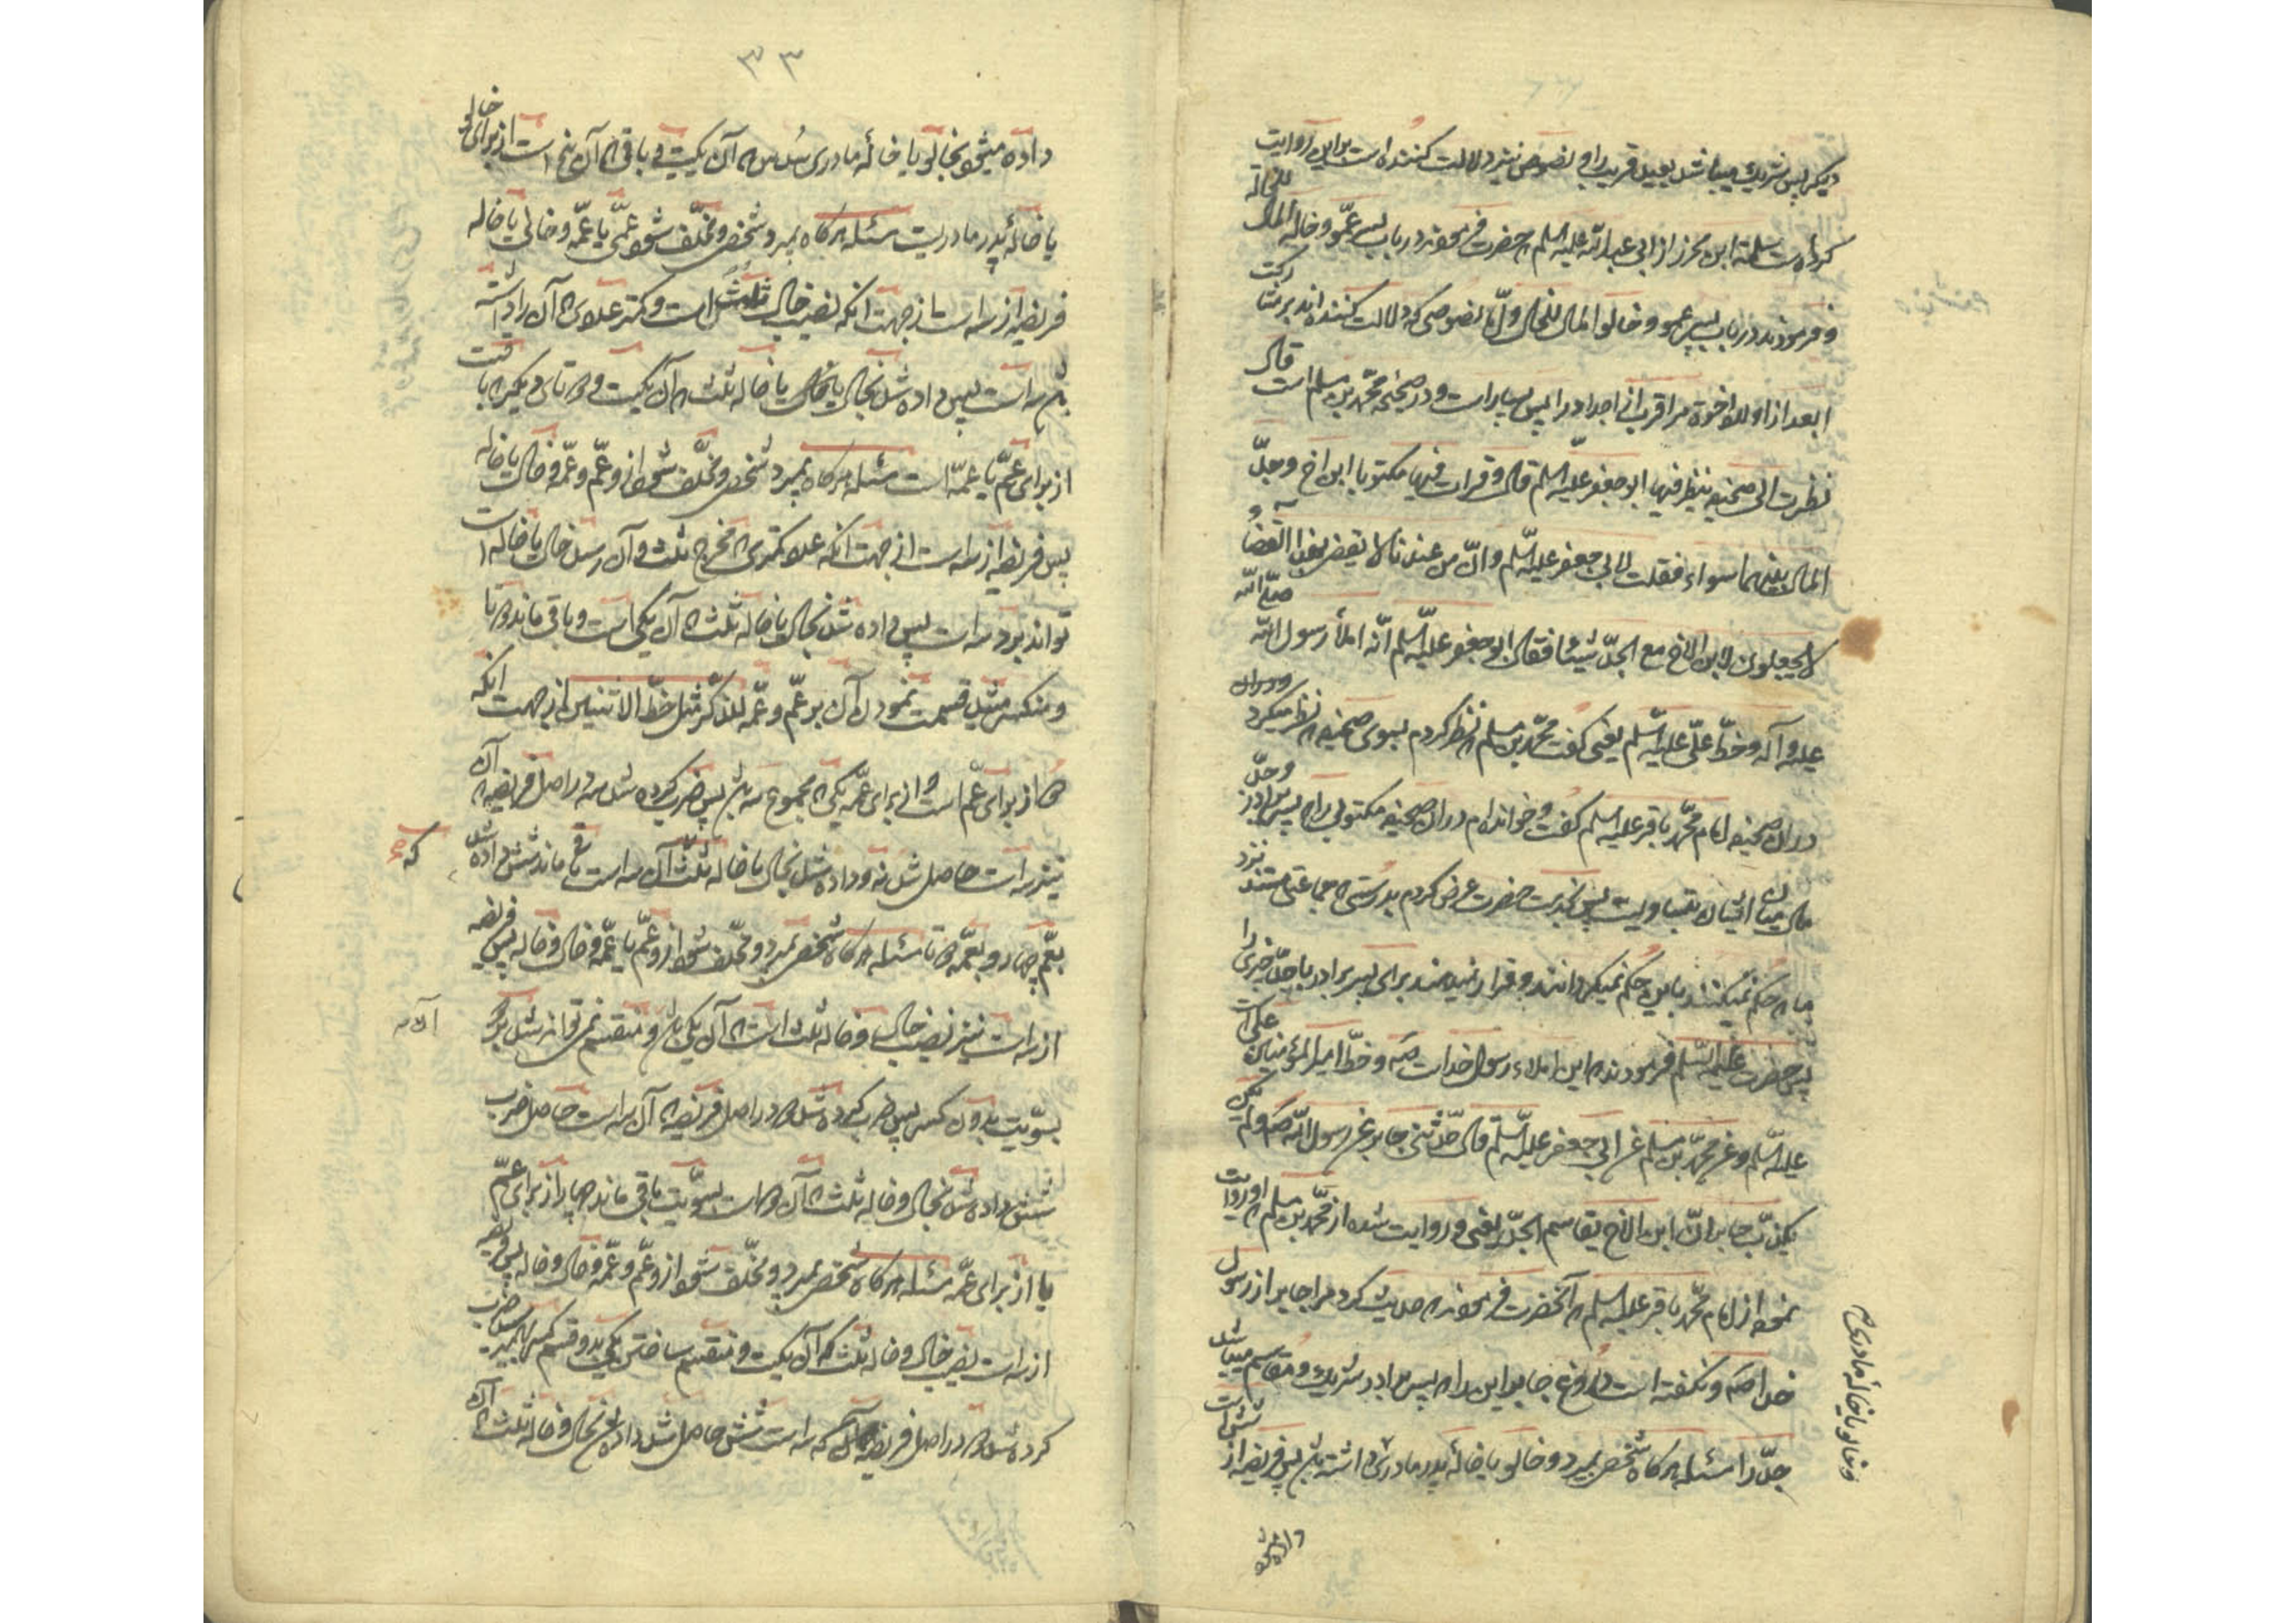 دیگر پس شریك میباشد بعید قریب را و نصوص نیز دلالت کننده است بر این روایت
کرده است سلمة ابن محرز از ابی عبد الله علیه السلم که حضرت فرمودند در باب پسر عمو و خاله المال للخالة
و فرمودند در باب پسر عمو و خالو المال للخال و اما نصوصی که دلالت کننده اند بر مشارکت
ابعد از اولاد اخوة مر اقرب از اجداد را پس بسیار است و در صحیحه محمد بن مسلم است قال
نظرت الی صحیفه ینظر فیها ابو جعفر علیه السلم قال و قرات فیها مکتوبا ابن اخ و جدّ
المال بینهما سواء فقلت لابی جعفر علیه السلم و انّ من عندنا لا یقضی بهذا القضاء و
لا یجعلون لابن الاخ مع الجدّ شیئا فقال ابو جعفر علیه السلم انّه املأ رسول الله صلّی الله
علیه و آله و خطّ علّی علیه السّلم یعنی گفت محمّد بن مسلم که نظر کردم بسوی صحیفه که نظر میکرد در آن
در آن صحیفه امام محمّد باقر علیه السلم گفت و خوانده ام در آن صحیفه مکتوبی را که پسر برادر و جدّ
مال میان ایشان بتساویست پس بخدمت حضرت عرض کردم بدرستی که جماعتی هستند نزد
ما که حکم نمیکنند باین حکم و قرار نمیدهند برای پسر برادر با جدّ چیزی را
پس حضرت علیه السّلم فرمودند که این املاء رسول خداست صه و خطّ امیر المؤمنین علی است
علیه السّلم و عن محمّد بن مسلم عن ابی جعفر علیه السّلم قال حدّثنی جابر عن رسول الله صه و لم یکن
یکذب جابر انّ ابن الاخ یقاسم الجدّ یعنی و روایت شده از محمّد بن مسلم که او روایت
نموده از امام محمّد باقر علیه السلم که آنحضرت فرمودند که حدیث کرد مرا جابر از رسول
خدا صه و نگفته است دروغ جابر این را که پسر برادر شریك و مقاسم میباشد
جدّ را مسئله هرگاه شخص بمیرد و خالو یا خالۀ پدر مادری داشته باشد پس فریضه از شش است
و خالو یا خالۀ مادری هم
داده میشود
۳۳
داده میشود بخالو یا خالۀ مادری سُدس که آن یکیست و باقی که آن پنج است از برای خالو
یا خالۀ پدر مادریست مسئله هرگاه بمیرد شخص و مخلّف شود عمّی یا عمّه و خالی یا خاله
فریضه از سه است از جهت آنکه نصیب خال ثلث است و کمتر عددی که آن را داشته
باشد سه است پس داده شد بخال یا خاله ثلث که آن یکیست و دو تای دیگر که باقیست
از برای عمّ یا عمّه است مسئله هرگاه بمیرد شخص و مخلّف شود از و عمّ و عمّه و خال یا خاله
پس فریضه از سه است از جهت آنکه عدد کمتری که مخرج ثلث و آن رسد خال یا خاله است
تواند بود سه است پس داده شد بخال یا خاله ثلث که آن یکی است و باقی ماند دو تا
و منکسر میشد قسمت نمودن آن بر عمّ و عمّه للذّکر مثل حظّ الانثیین از جهت آنکه
دو از برای عمّ است و از برای عمّه یکی که مجموع سه باشد پس ضرب کرده شد سه در اصل فریضه که آن
نیز سه است حاصل شد نه و داده شد بخال یا خاله ثلث آن که سه است باقی ماند شش داده شد
بعمّ چهار و بعمّه دو تا مسئله هرگاه شخص بمیرد و مخلّف شود از و عمّ یا عمّه و خال و خاله پس فریضه
از سه است نیز نصیب خال و خاله ثلث است که آن یکی باشد و منقسم نمی تواند شد بر دو
بسوّیت بدون کسر پس ضرب کرده شد دو در اصل فریضه که آن سه است حاصل ضرب
شش داده شد بخال و خاله ثلث که آن دو است بسوّیت باقی ماند چهار از برای عمّ
یا از برای عمّه مسئله هرگاه شخص بمیرد و مخلّف شود از و عمّ و عمّه و خال و خاله پس فریضه
از سه است نصیب خال و خاله ثلث که آن یکیست و منقسم ساختن یکی بدو قسم کسر بهم میرسد پس ضرب
کرده شد دو در اصل فریضه که سه است شش حاصل شد داده شد بخال و خاله ثلث که آن